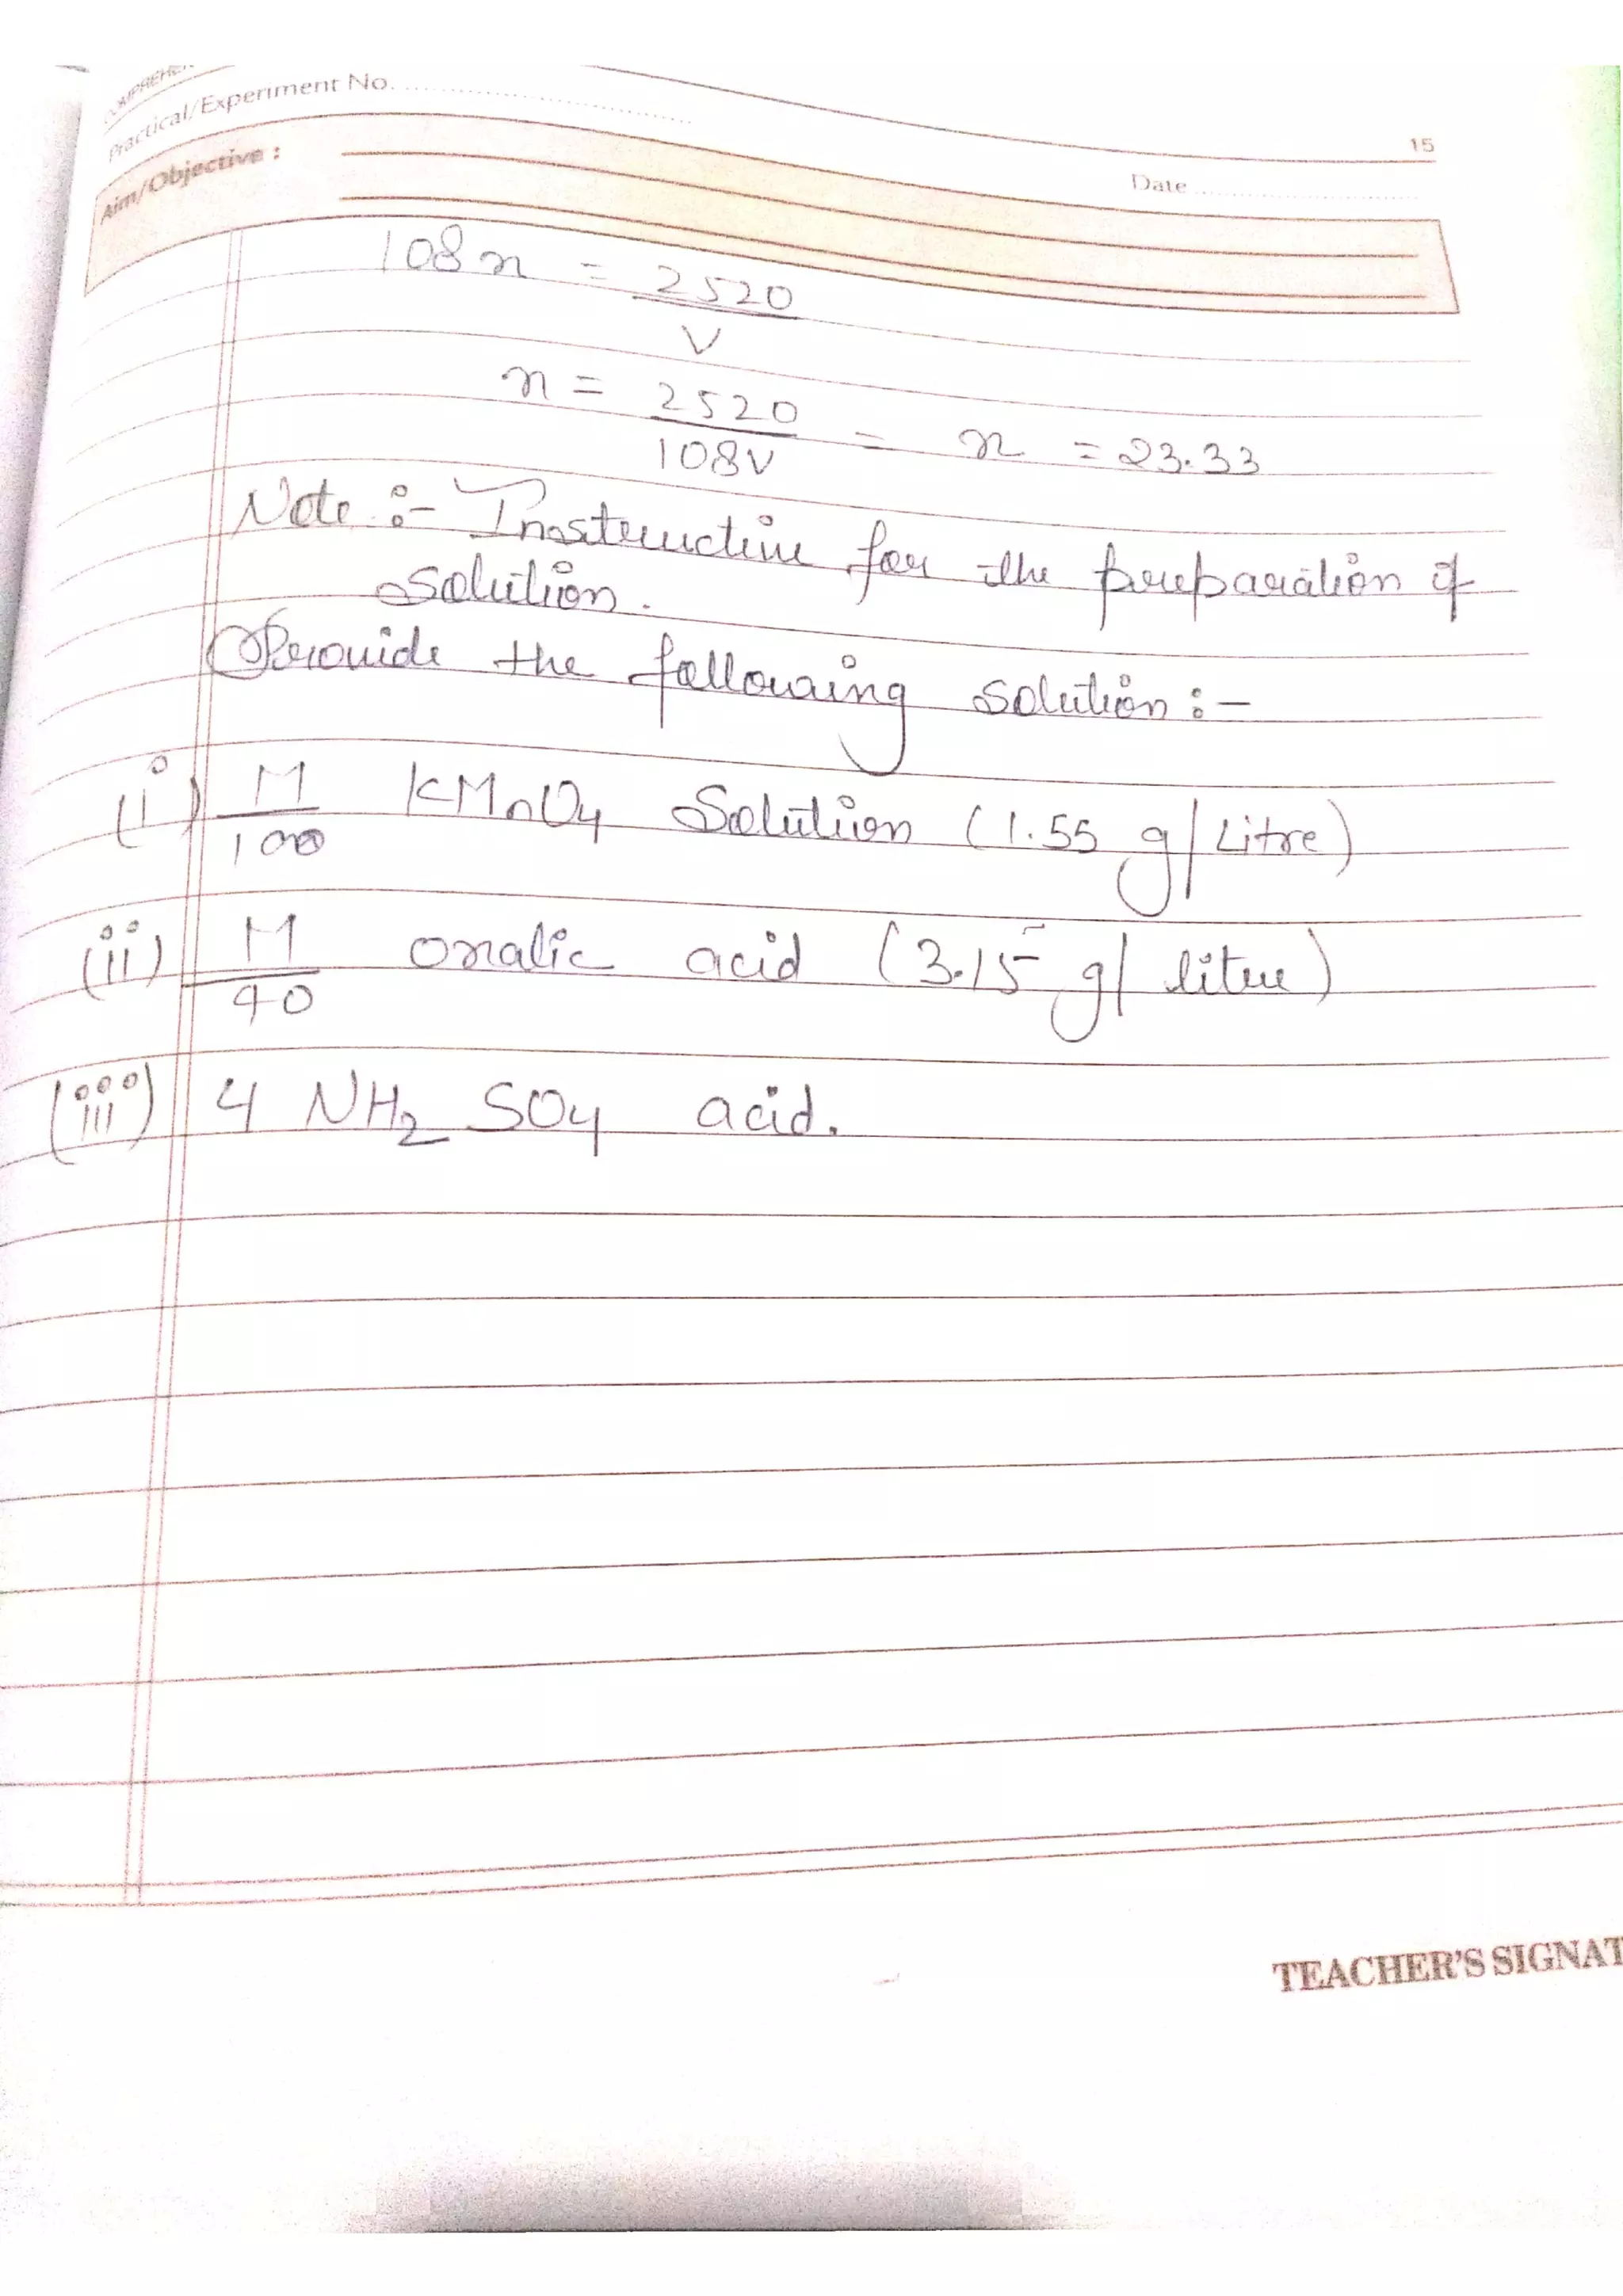 Practical/Experiment No.
15
Date
Aim/Objective :
108x = 2520
V
x = 2520 = x = 23.33
108V
Note :- Instructive for the preparation of
solution.
Provide the following solution :-
(i) M KMnO4 Solution (1.55 g/Litre)
100
(ii) M oxalic acid (3.15 g/ litre)
40
(iii) 4 NH2 SO4 acid.
TEACHER'S SIGNAT